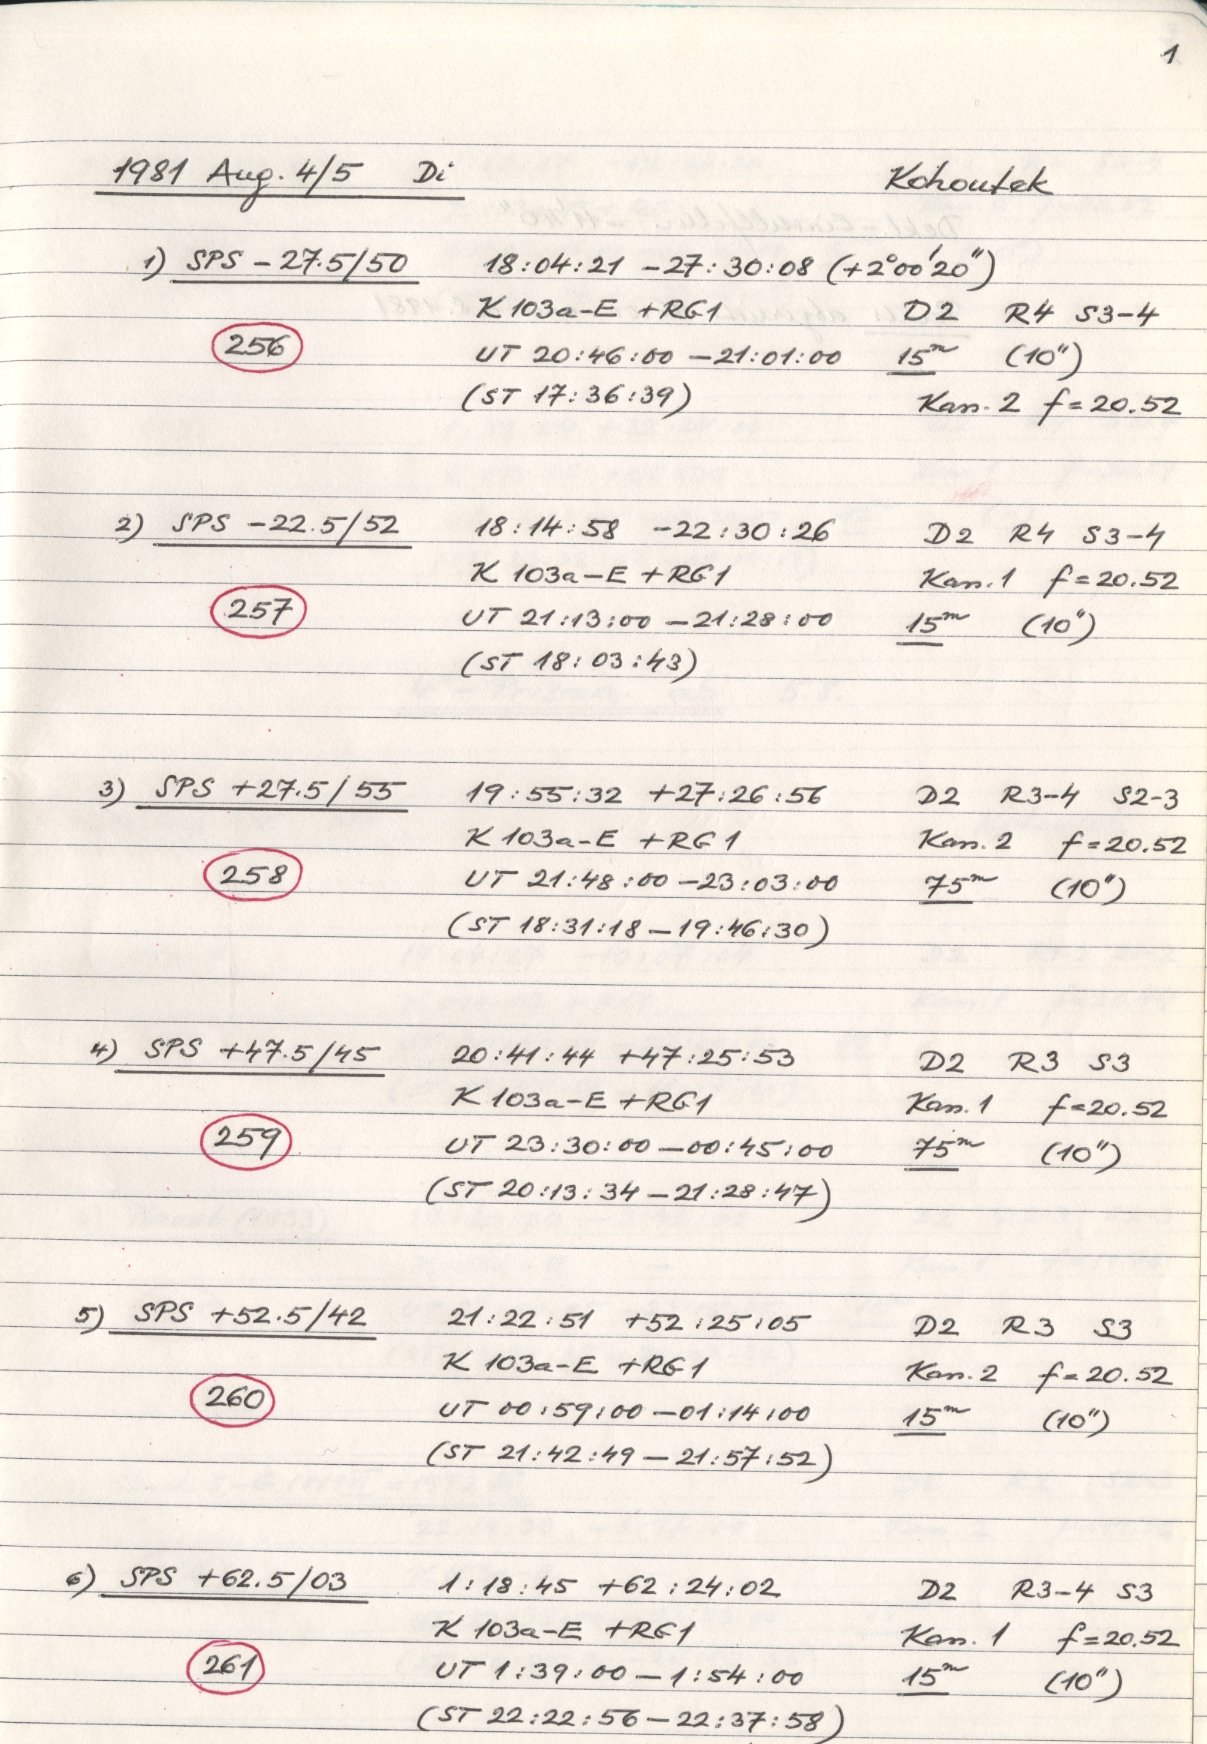 1
1981 Aug. 4/5 Di Kohoutek
1) SPS -27.5/50 18:04:21 -27:30:08 (+2°00'20")
K 103a-E +RG1 D2 R4 S3-4
256 UT 20:46:00 -21:01:00 15m (10")
(ST 17:36:39) Kan. 2 f=20.52
2) SPS -22.5/52 18:14:58 -22:30:26 D2 R4 S3-4
K 103a-E +RG1 Kan. 1 f=20.52
257 UT 21:13:00 -21:28:00 15m (10")
(ST 18:03:43)
3) SPS +27.5/55 19:55:32 +27:26:56 D2 R3-4 S2-3
K 103a-E +RG1 Kan. 2 f=20.52
258 UT 21:48:00 -23:03:00 75m (10")
(ST 18:31:18 -19:46:30)
4) SPS +47.5/45 20:41:44 +47:25:53 D2 R3 S3
K 103a-E +RG1 Kan. 1 f=20.52
259 UT 23:30:00 -00:45:00 75m (10")
(ST 20:13:34 -21:28:47)
5) SPS +52.5/42 21:22:51 +52:25:05 D2 R3 S3
K 103a-E +RG1 Kan. 2 f=20.52
260 UT 00:59:00 -01:14:00 15m (10")
(ST 21:42:49 - 21:57:52)
6) SPS +62.5/03 1:18:45 +62:24:02 D2 R3-4 S3
K 103a-E +RG1 Kan. 1 f=20.52
261 UT 1:39:00 - 1:54:00 15m (10")
(ST 22:22:56 - 22:37:58)